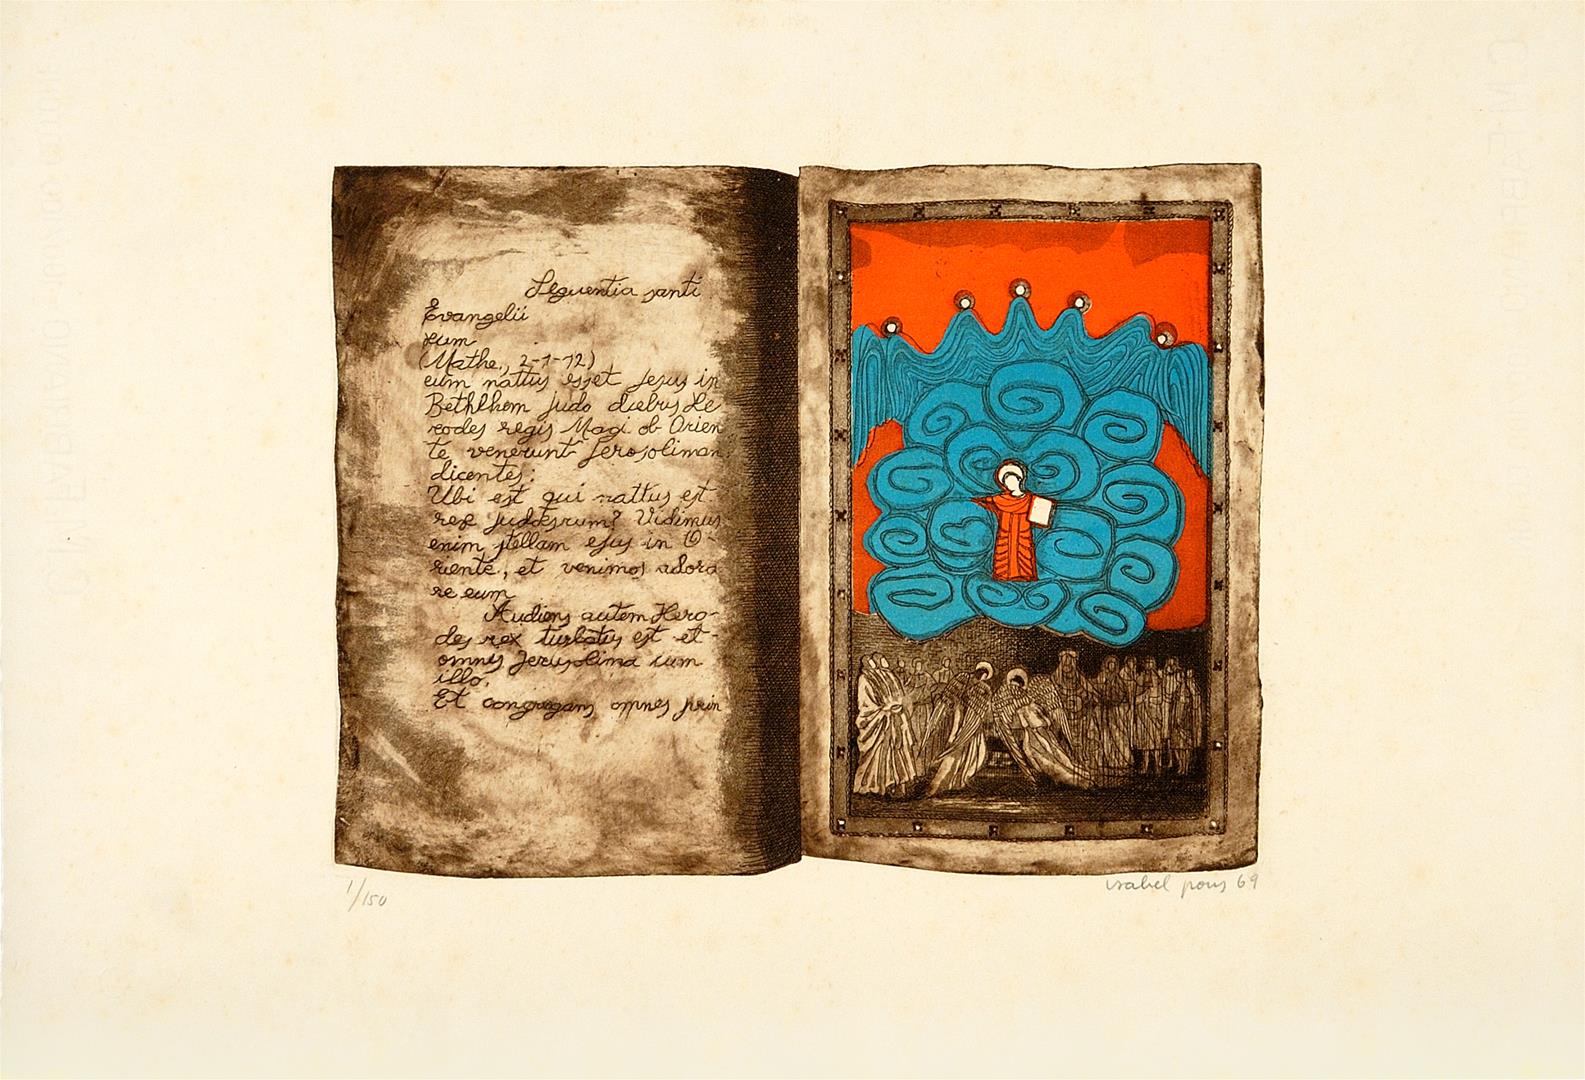 Sequentia santi
Evangelii
eum
(Mathe., 2-1-12)
eum nattus esset Jesus in
Bethlhem juda diebus He
rodes regis Magi ob Orien
te venerunt Jerosoliman,
dicentes:
Ubi est qui nattus est
rex judæsrum? Vidimus
enim stellam ejus in O-
riente, et venimos adora
re eum
Audiens autem Hero-
des rex turbatus est et
omnis Jerusolima cum
illo,
Et congregans omnes prin
1/150
isabel pons 69